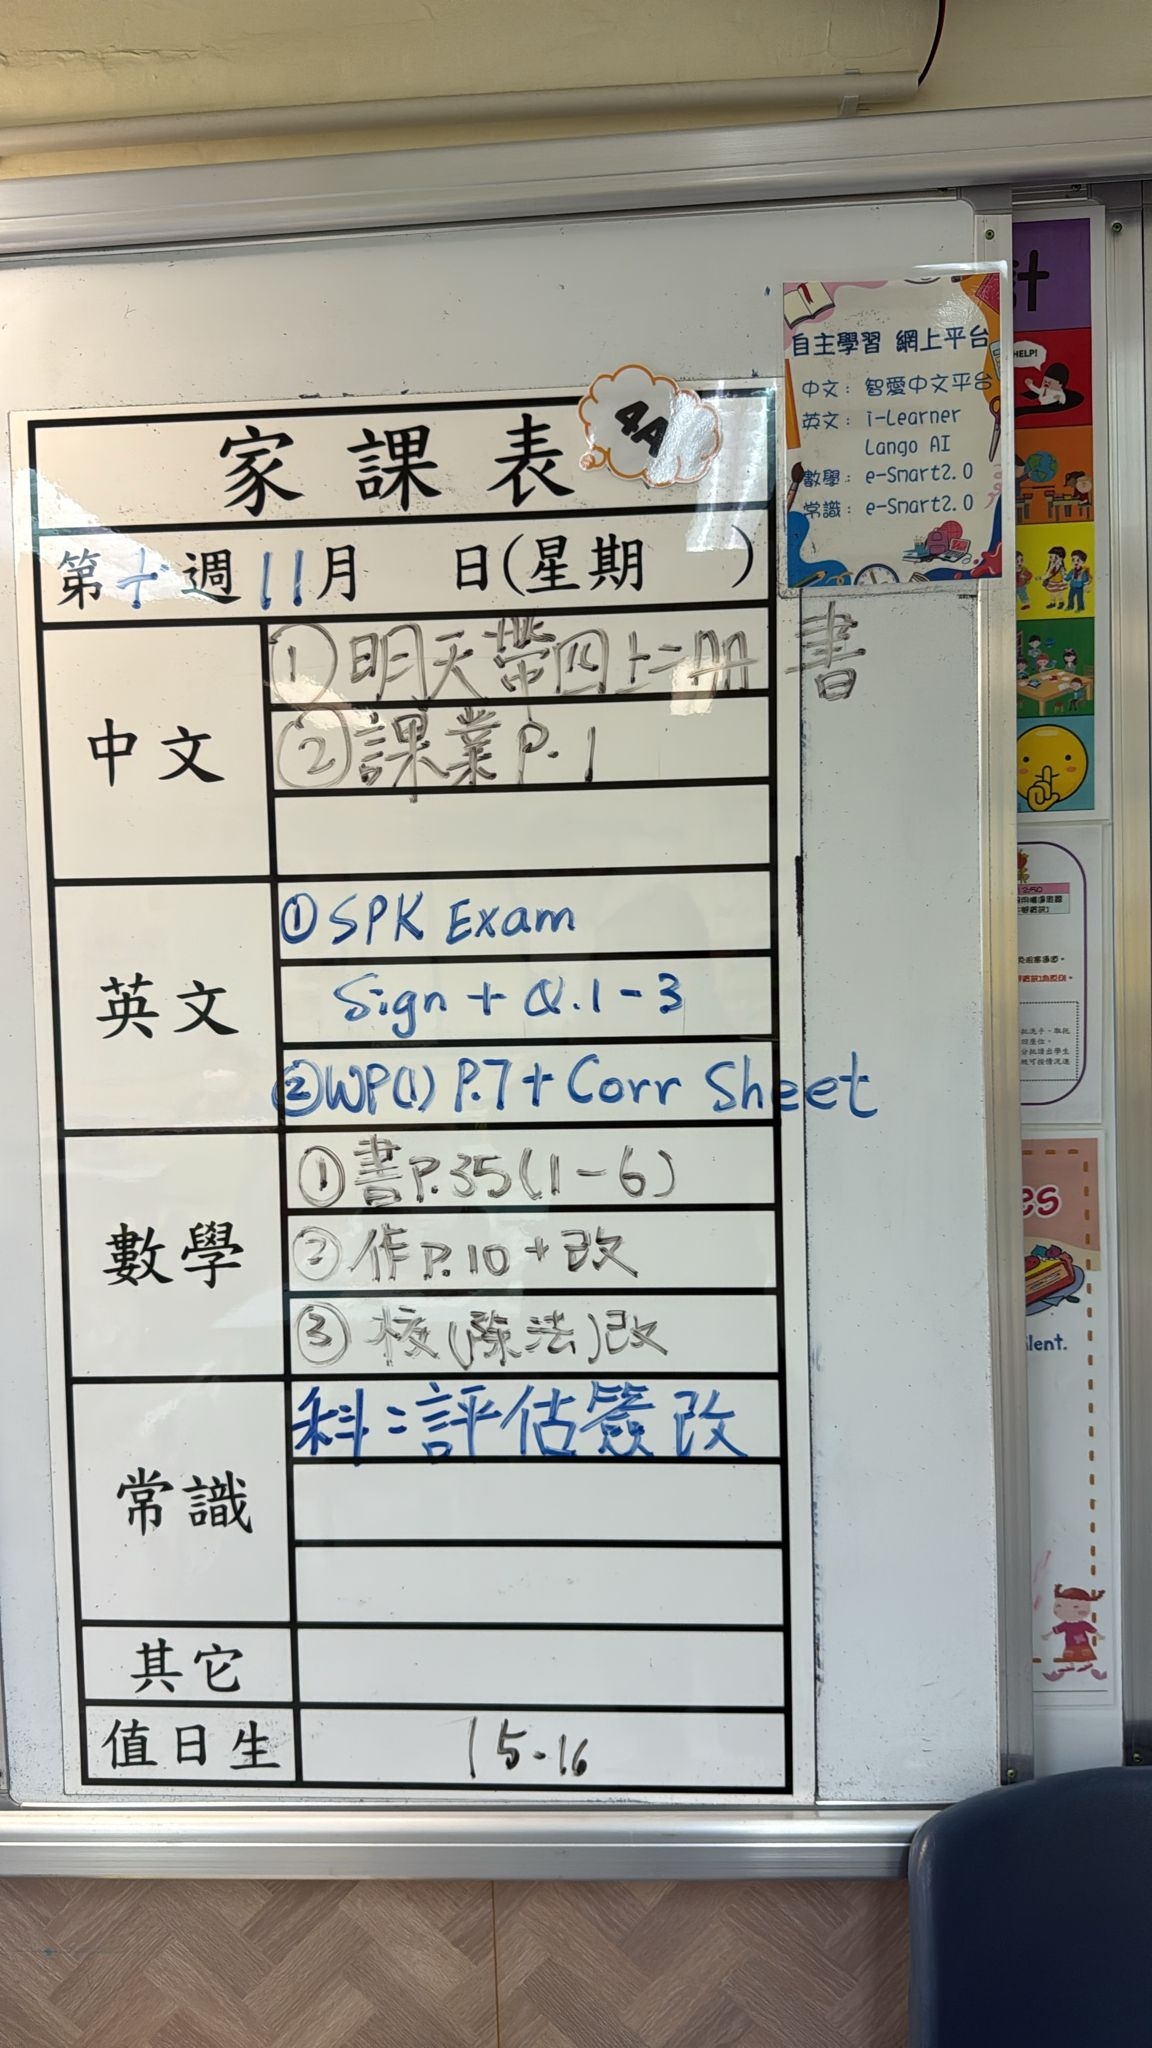 家課表
4A
第十週11月 日(星期 )
中文
①明天帶四上二冊書
②課業P.1
英文
①SPK Exam
Sign + Q.1-3
②WP(1) P.7+ Corr Sheet
數學
①書P.35(1-6)
②作P.10+改
③核(除法)改
常識
科:評估簽改
其它
值日生
15.16
自主學習 網上平台
中文: 智愛中文平台
英文: i-Learner
Lango AI
數學: e-Smart2.0
常識: e-Smart2.0
計
HELP!
es
ilent.